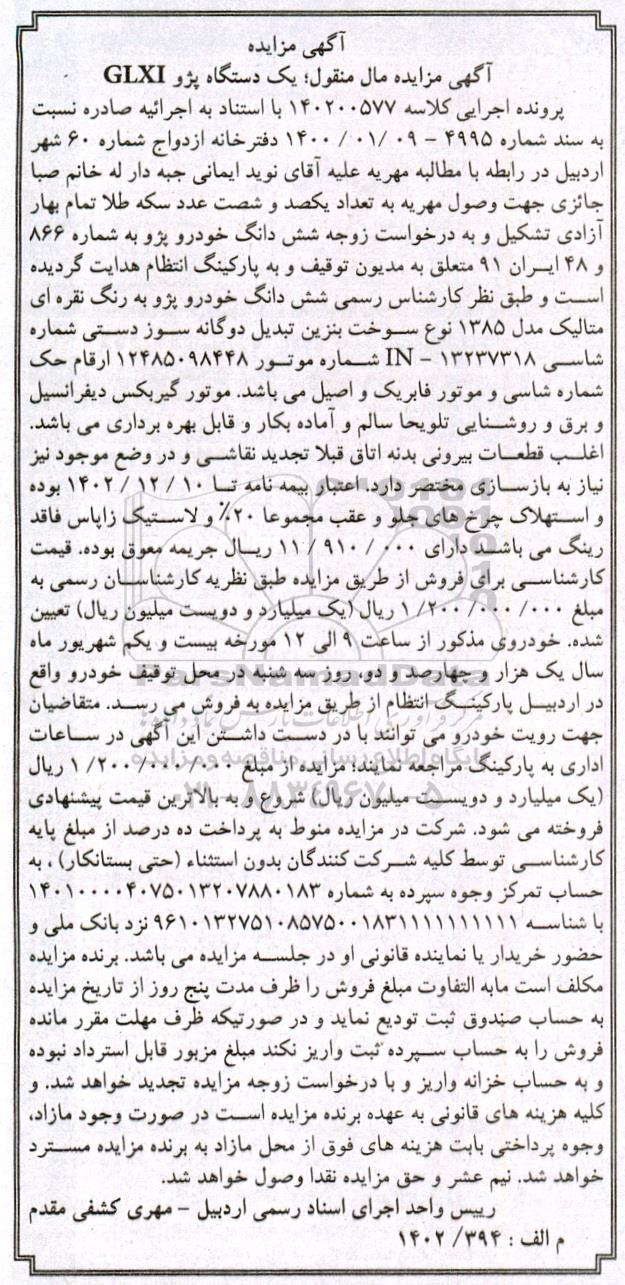 آگهی مزایده
آگهی مزایده مال منقول؛ یک دستگاه پژو GLXI
پرونده اجرایی کلاسه ۱۴۰۲۰۰۵۷۷ با استناد به اجرائیه صادره نسبت
به سند شماره ۴۹۹۵ - ۰۹ /۰۱ /۱۴۰۰ دفترخانه ازدواج شماره ۶۰ شهر
اردبیل در رابطه با مطالبه مهریه علیه آقای نوید ایمانی جبه دار له خانم صبا
جائزی جهت وصول مهریه به تعداد یکصد و شصت عدد سکه طلا تمام بهار
آزادی تشکیل و به درخواست زوجه شش دانگ خودرو پژو به شماره ۸۶۶
و ۴۸ ایران ۹۱ متعلق به مدیون توقیف و به پارکینگ انتظام هدایت گردیده
است و طبق نظر کارشناس رسمی شش دانگ خودرو پژو به رنگ نقره ای
متالیک مدل ۱۳۸۵ نوع سوخت بنزین تبدیل دوگانه سوز دستی شماره
شاسی IN - ۱۳۲۳۷۳۱۸ شماره موتور ۱۲۴۸۵۰۹۸۴۴۸ ارقام حک
شماره شاسی و موتور فابریک و اصیل می باشد. موتور گیربکس دیفرانسیل
و برق و روشنایی تلویحا سالم و آماده بکار و قابل بهره برداری می باشد.
اغلب قطعات بیرونی بدنه اتاق قبلا تجدید نقاشی و در وضع موجود نیز
نیاز به بازسازی مختصر دارد. اعتبار بیمه نامه تا ۱۰ / ۱۲ / ۱۴۰۲ بوده
و استهلاک چرخ های جلو و عقب مجموعا ۲۰٪ و لاستیک زاپاس فاقد
رینگ می باشد دارای ۰۰۰ / ۹۱۰ / ۱۱ ریال جریمه معوق بوده. قیمت
کارشناسی برای فروش از طریق مزایده طبق نظریه کارشناسان رسمی به
مبلغ ۰۰۰/ ۰۰۰/ ۲۰۰/ ۱ ریال (یک میلیارد و دویست میلیون ریال) تعیین
شده. خودروی مذکور از ساعت ۹ الی ۱۲ مورخه بیست و یکم شهریور ماه
سال یک هزار و چهارصد و دو، روز سه شنبه در محل توقیف خودرو واقع
در اردبیل پارکینگ انتظام از طریق مزایده به فروش می رسد. متقاضیان
جهت رویت خودرو می توانند با در دست داشتن این آگهی در ساعات
اداری به پارکینگ مراجعه نمایند؛ مزایده از مبلغ ۰۰۰/ ۰۰۰/ ۲۰۰/ ۱ ریال
(یک میلیارد و دویست میلیون ریال) شروع و به بالاترین قیمت پیشنهادی
فروخته می شود. شرکت در مزایده منوط به پرداخت ده درصد از مبلغ پایه
کارشناسی توسط کلیه شرکت کنندگان بدون استثناء (حتی بستانکار) . به
حساب تمرکز وجوه سپرده به شماره ۱۴۰۱۰۰۰۰۴۰۷۵۰۱۳۲۰۷۸۸۰۱۸۳
با شناسه ۹۶۱۰۱۳۲۷۵۱۰۸۵۷۵۰۰۱۸۳۱۱۱۱۱۱۱۱۱۱ نزد بانک ملی و
حضور خریدار یا نماینده قانونی او در جلسه مزایده می باشد. برنده مزایده
مکلف است مابه التفاوت مبلغ فروش را ظرف مدت پنج روز از تاریخ مزایده
به حساب صندوق ثبت تودیع نماید و در صورتیکه ظرف مهلت مقرر مانده
فروش را به حساب سپرده ثبت واریز نکند مبلغ مزبور قابل استرداد نبوده
و به حساب خزانه واریز و با درخواست زوجه مزایده تجدید خواهد شد. و
کلیه هزینه های قانونی به عهده برنده مزایده است در صورت وجود مازاد،
وجوه پرداختی بابت هزینه های فوق از محل مازاد به برنده مزایده مسترد
خواهد شد. نیم عشر و حق مزایده نقدا وصول خواهد شد.
رییس واحد اجرای اسناد رسمی اردبیل - مهری کشفی مقدم
م الف : ۳۹۴/ ۱۴۰۲
ParsNamadData